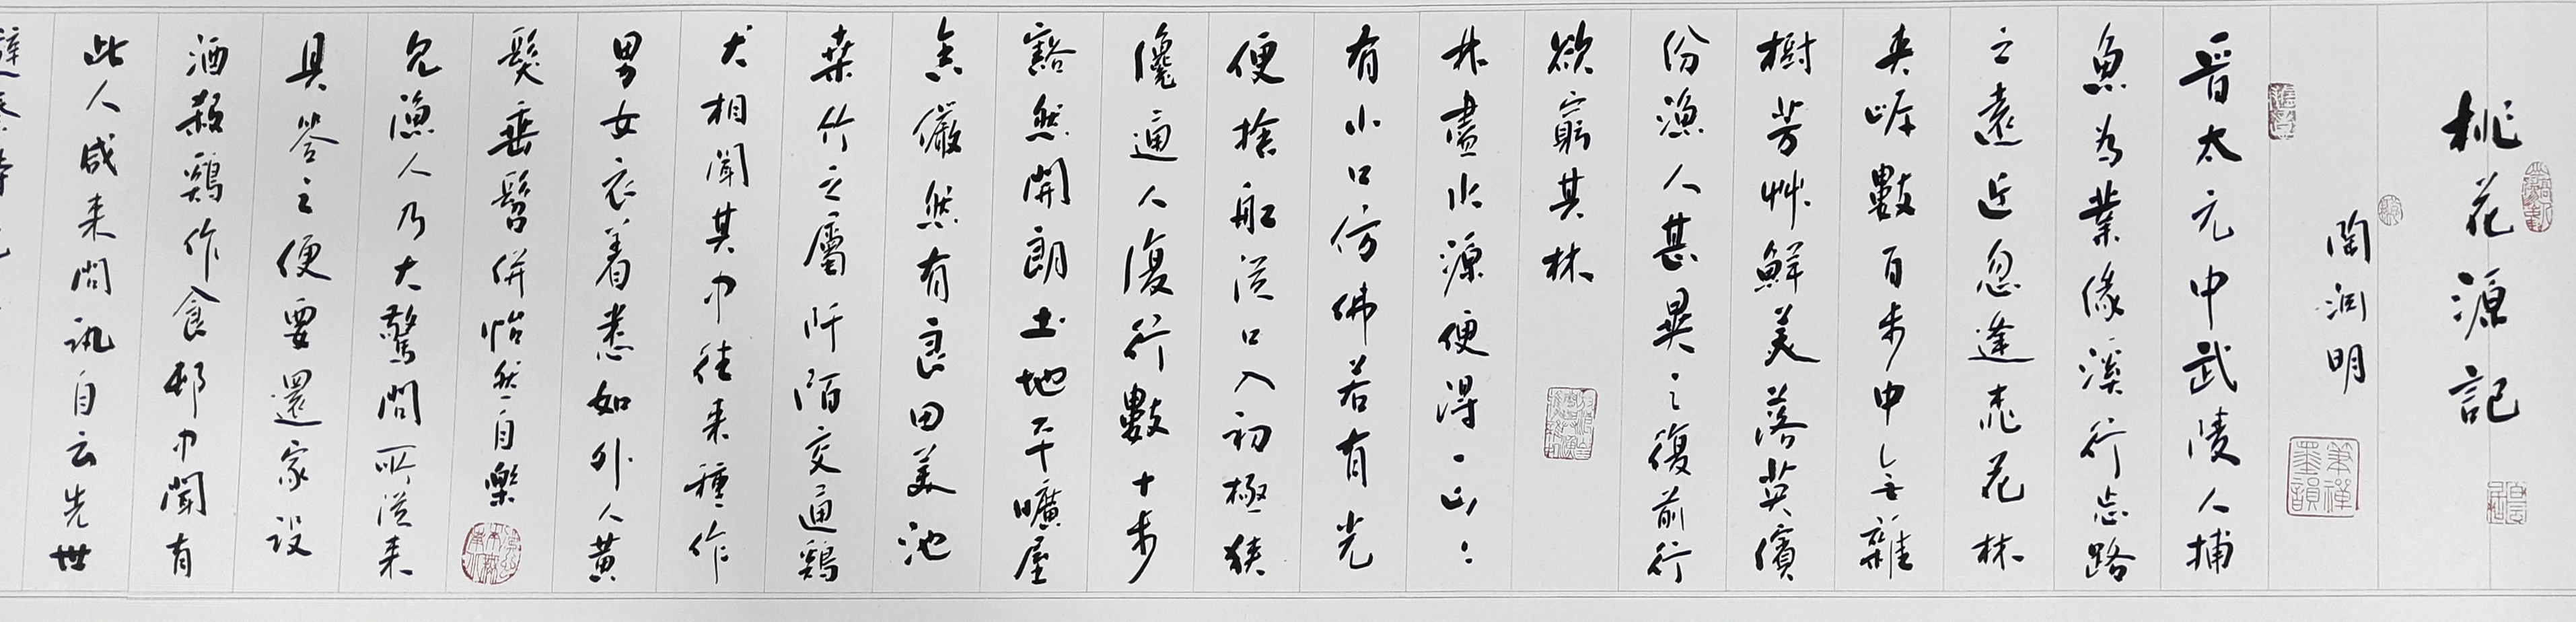 桃花源記
陶渊明
筆禅墨韻
晉太元中武陵人捕
魚為業緣溪行忘路
之遠近忽逢桃花林
夾岸數百步中無雜
樹芳艸鮮美落英繽
份漁人甚異之復前行
欲窮其林
林盡水源便得一山〻
有小口仿佛若有光
便捨船從口入初極狹
纔通人復行數十步
豁然開朗土地平曠屋
舍儼然有良田美池
桑竹之屬阡陌交通鷄
犬相聞其中往来種作
男女衣着悉如外人黄
髮垂髫併怡然自樂
見漁人乃大驚問所從来
具答之便要還家設
酒殺鷄作食邨中聞有
此人咸来問訊自云先世
避秦時